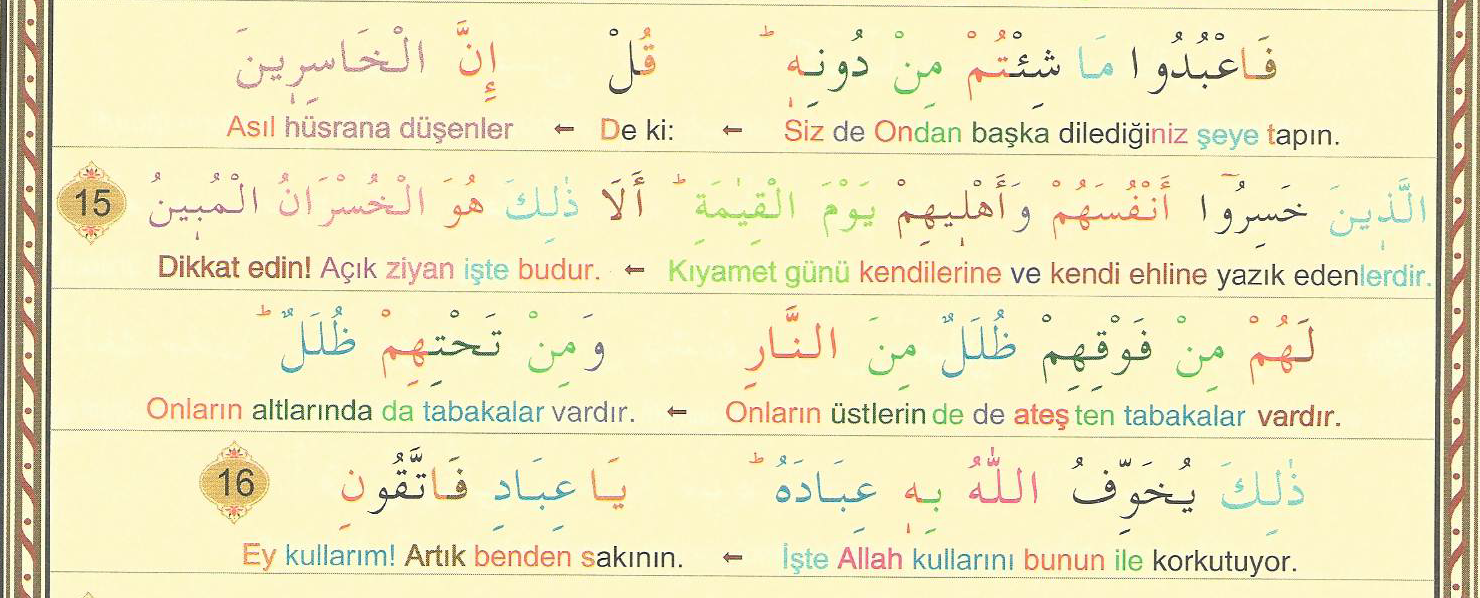 فَاعْبُدُوا مَا شِئْتُمْ مِنْ دُونِهٖۜ قُلْ إِنَّ الْخَاسِرٖينَ
Siz de Ondan başka dilediğiniz şeye tapın. ← De ki: ← Asıl hüsrana düşenler
الَّذٖينَ خَسِرُٓوا أَنْفُسَهُمْ وَأَهْلٖيهِمْ يَوْمَ الْقِيٰمَةِۜ أَلَا ذٰلِكَ هُوَ الْخُسْرَانُ الْمُبٖينُ 15
Kıyamet günü kendilerine ve kendi ehline yazık edenlerdir. ← Dikkat edin! Açık ziyan işte budur.
لَهُمْ مِنْ فَوْقِهِمْ ظُلَلٌ مِنَ النَّارِ وَمِنْ تَحْتِهِمْ ظُلَلٌۜ
Onların üstlerinde de ateşten tabakalar vardır. ← Onların altlarında da tabakalar vardır.
ذٰلِكَ يُخَوِّفُ اللّٰهُ بِهٖ عِبَادَهُۜ يَا عِبَادِ فَاتَّقُونِ 16
İşte Allah kullarını bunun ile korkutuyor. ← Ey kullarım! Artık benden sakının.